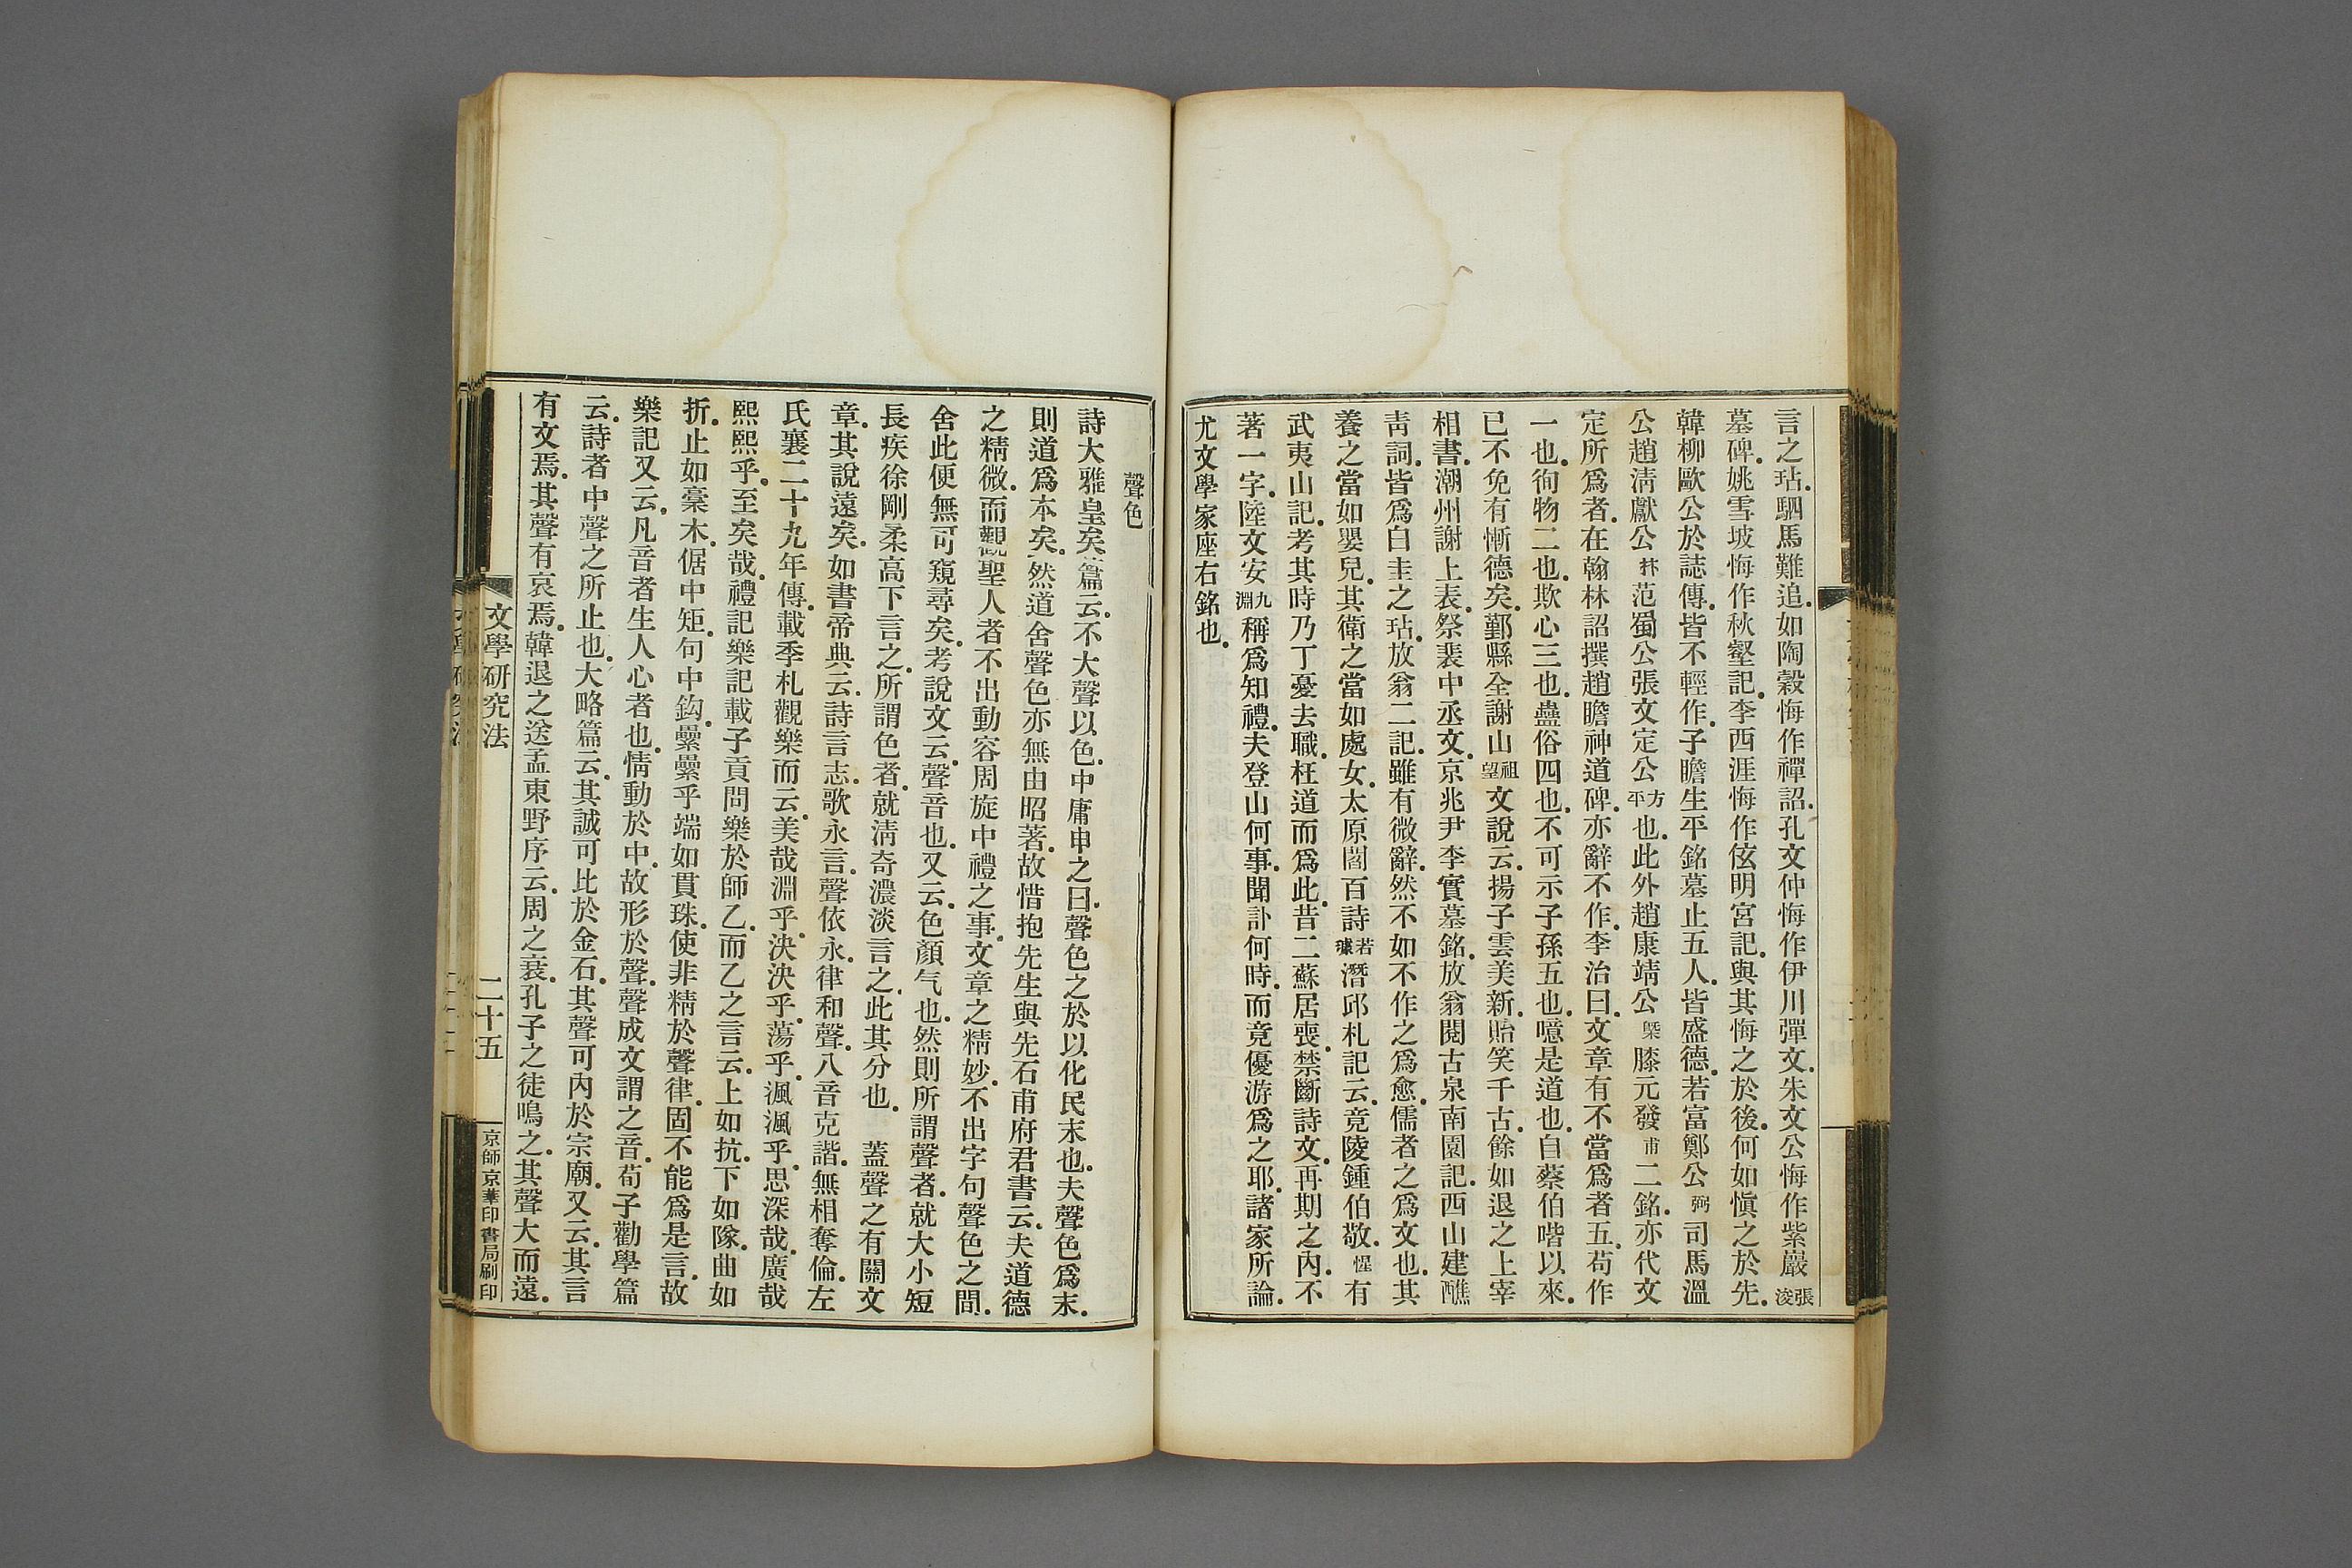 言之玷.駟馬難追.如陶穀悔作禪詔.孔文仲悔作伊川彈文.朱文公悔作紫巖張浚
墓碑.姚雪坡悔作秋壑記.李西涯悔作伭明宮記.與其悔之於後.何如愼之於先.
韓柳歐公於誌傳.皆不輕作.子瞻生平銘墓止五人.皆盛德.若富鄭公弼司馬溫
公趙淸獻公抃范蜀公張文定公方平也.此外趙康靖公槩滕元發甫二銘.亦代文
定所爲者.在翰林詔撰趙瞻神道碑.亦辭不作.李治曰.文章有不當爲者五.苟作
一也.徇物二也.欺心三也.蠱俗四也.不可示子孫五也.噫是道也.自蔡伯喈以來.
已不免有慚德矣.鄞縣全謝山祖望文說云.揚子雲美新.貽笑千古.餘如退之上宰
相書.潮州謝上表.祭裴中丞文.京兆尹李實墓銘.放翁閱古泉南園記.西山建醮
靑詞.皆爲白圭之玷.放翁二記.雖有微辭.然不如不作之爲愈.儒者之爲文也.其
養之當如嬰兒.其衛之當如處女.太原閻百詩若璩潛邱札記云.竟陵鍾伯敬.惺有
武夷山記.考其時乃丁憂去職.枉道而爲此.昔二蘇居喪.禁斷詩文.再期之內.不
著一字.陸文安九淵稱爲知禮.夫登山何事.聞訃何時.而竟優游爲之耶.諸家所論.
尤文學家座右銘也.
聲色
詩大雅皇矣篇云.不大聲以色.中庸申之曰.聲色之於以化民末也.夫聲色爲末.
則道爲本矣.然道舍聲色亦無由昭著.故惜抱先生與先石甫府君書云.夫道德
之精微.而觀聖人者不出動容周旋中禮之事.文章之精妙.不出字句聲色之間.
舍此便無可窺尋矣.考說文云.聲音也.又云.色顏气也.然則所謂聲者.就大小短
長疾徐剛柔高下言之.所謂色者.就淸奇濃淡言之.此其分也. 蓋聲之有關文
章.其說遠矣.如書帝典云.詩言志.歌永言.聲依永.律和聲.八音克諧.無相奪倫.左
氏襄二十九年傳.載季札觀樂而云.美哉淵乎.泱泱乎.蕩乎.渢渢乎.思深哉.廣哉
熙熙乎.至矣哉.禮記樂記載子貢問樂於師乙.而乙之言云.上如抗.下如隊.曲如
折.止如槀木.倨中矩.句中鈎.纍纍乎端如貫珠.使非精於聲律.固不能爲是言.故
樂記又云.凡音者生人心者也.情動於中.故形於聲.聲成文謂之音.荀子勸學篇
云.詩者中聲之所止也.大略篇云.其誠可比於金石.其聲可內於宗廟.又云.其言
有文焉.其聲有哀焉.韓退之送孟東野序云.周之衰.孔子之徒鳴之.其聲大而遠.
文學研究法
二十五
京師京華印書局刷印